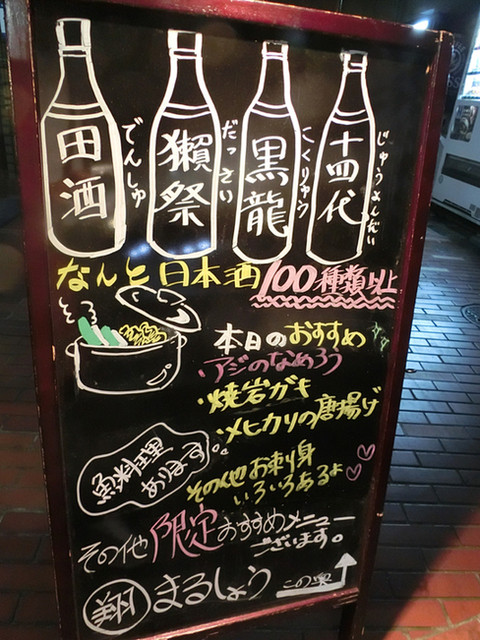 田酒
でんしゅ
獺祭
だっさい
黒龍
こくりゅう
十四代
じゅうよんだい
なんと日本酒100種類以上
本日のおすすめ
アジのなめろう
・焼岩ガキ
・メヒカリの唐揚げ
魚料理
あります。
その他お刺身
いろいろあるよ
その他限定おすすめメニュー
ございます。
翔 まるしょう この奥